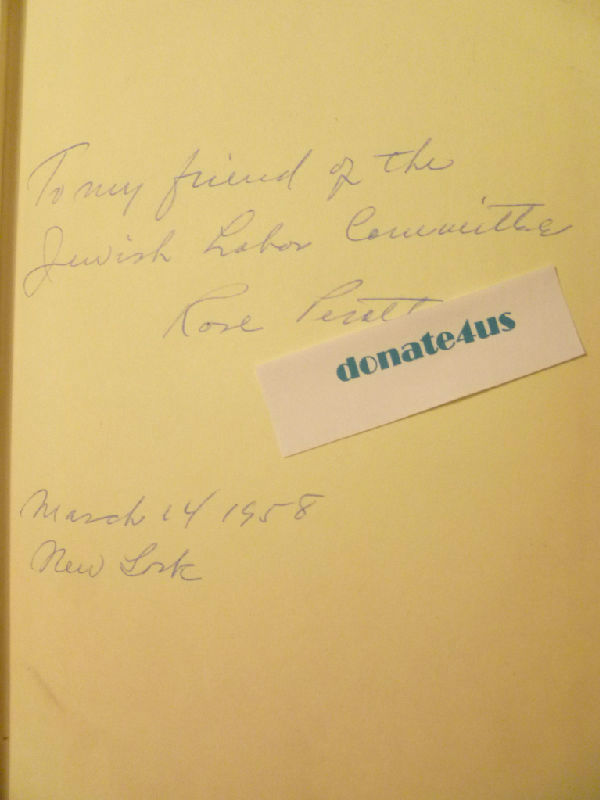 To my friend of the
Jewish Labor Committee
Rose
donate4us
March 14 1958
New York